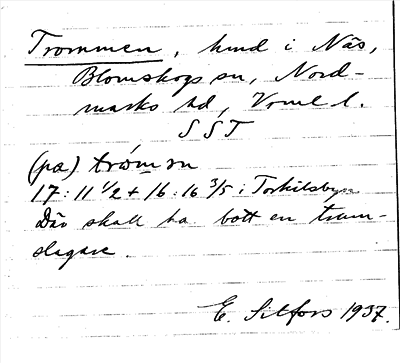 Trommen, hmd i Näs,
Blomskogs sn, Nord-
marks hd, Vrml l.
SST
(pa) trómsn
17:11 1/2 + 16:16 3/5 i Torkilsbyn
Där skall ha bott en trum-
slagare.
E. Silfors 1937.